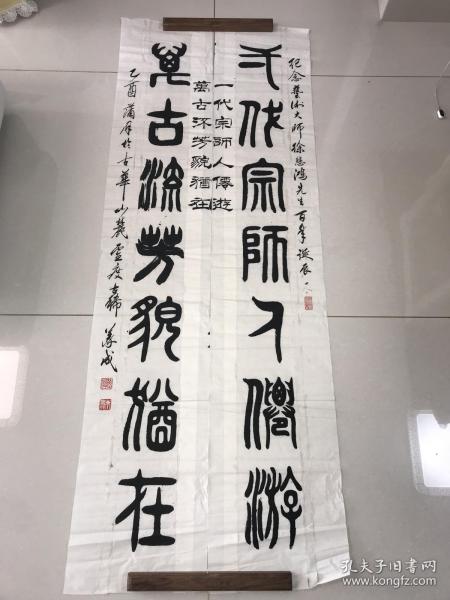 紀念藝術大師徐悲鴻先生百年誕辰
弌代宗師人僊游
一代宗師人僊遊
萬古流芳貌猶在
萬古流芳貌猶在
乙酉蒲月於古華山麓虛度古稀
孔夫子旧书网
www.kongfz.com